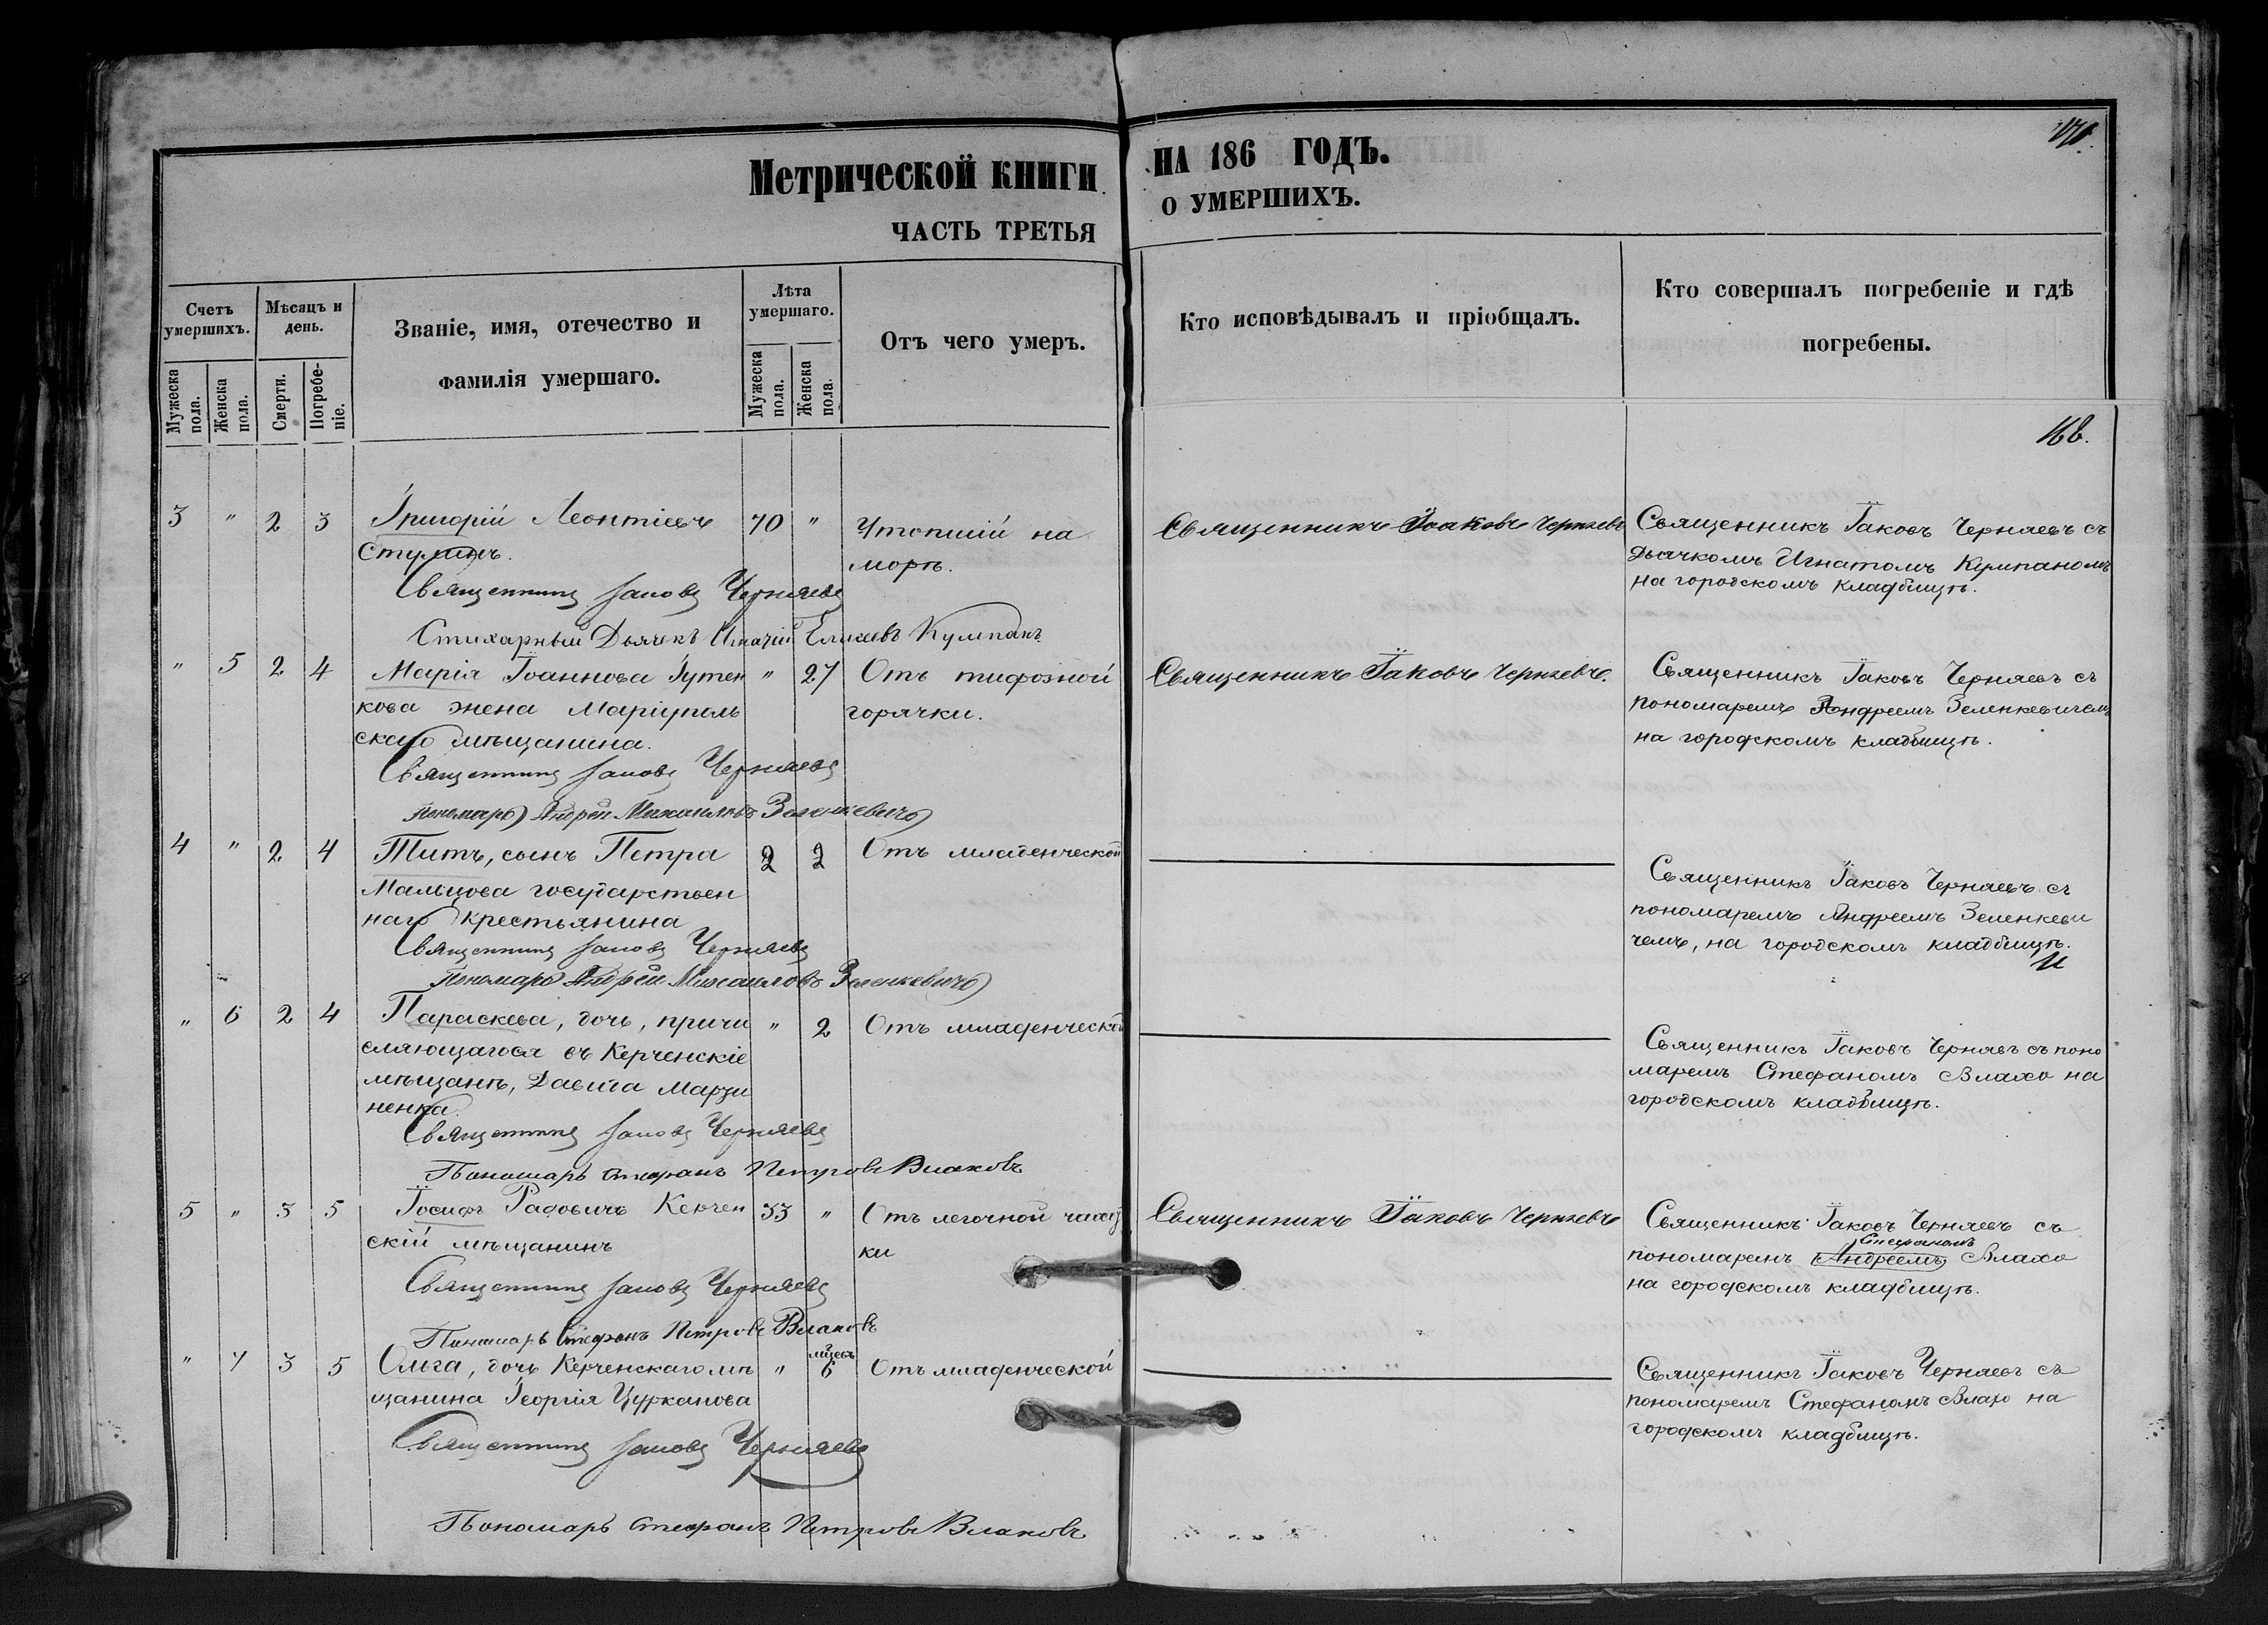 Метрической книги
ЧАСТЬ ТРЕТЬЯ
НА 186 ГОДЪ.
О УМЕРШИХЪ.
Счетъ умершихъ.
Мужеска пола.
Женска пола.
Мѣсяцъ и день.
Смерти.
Погребеніе.
Званіе, имя, отечество и
фамилія умершаго.
Лѣта умершаго.
Мужеска пола.
Женска пола.
Отъ чего умеръ.
Кто исповѣдывалъ и пріобщалъ.
Кто совершалъ погребеніе и гдѣ
погребены.
3 " 2 3 Григорій Леонтіевъ 70 " Утопшій на Священникъ Іоаковъ Черняевъ Священникъ Іаковъ Черняевъ съ
морѣ. дьячкомъ Игнатомъ Кумпаномъ
на городскомъ кладбищѣ.
Священникъ Іаковъ Черняевъ
Стихарный Дьячекъ Игнатій Елисеевъ Кумпанъ
" 5 2 4 Марія Іоаннова Гутен " 27 Отъ тифозной Священникъ Іаковъ Черняевъ. Священникъ Іаковъ Черняевъ съ
кова жена Маріуполь горячки. пономаремъ Андреемъ Зеленкевичемъ
скаго мѣщанина. на городскомъ кладбищѣ.
Священникъ Іаковъ Черняевъ
Пономарь Андрей Михаиловъ Зеленкевичъ
4 " 2 4 Титъ, сынъ Петра 2 2 Отъ младенческой Священникъ Іаковъ Черняевъ съ
Мальцова государствен пономаремъ Андреемъ Зеленкеви
наго крестьянина чемъ, на городскомъ кладбищѣ.
Священникъ Іаковъ Черняевъ
Пономарь Андрей Михаиловъ Зеленкевичъ
" 6 2 4 Параскева, дочь, причи " 2 Отъ младенческой Священникъ Іаковъ Черняевъ съ поно
сляющагося въ Керченскіе маремъ Стефаномъ Влахо на
мѣщанѣ, Давида Марзи городскомъ кладбищѣ.
ненка.
Священникъ Іаковъ Черняевъ
Пономарь Стефанъ Петровъ Влаховъ
5 " 3 5 Іосифъ Радовичъ Керчен 33 " Отъ легочной чахот Священникъ Іаковъ Черняевъ Священникъ Іаковъ Черняевъ съ
скій мѣщанинъ ки пономаремъ Андреемъ Стефаномъ Влахо
на городскомъ кладбищѣ.
Священникъ Іаковъ Черняевъ
Пономарь Стефанъ Петровъ Влаховъ
" 7 3 5 Ольга, дочь Керченскаго мѣ " мцевъ 6 Отъ младенческой Священникъ Іаковъ Черняевъ съ
щанина Георгія Цурканова пономаремъ Стефаномъ Влахо на
городскомъ кладбищѣ.
Священникъ Іаковъ Черняевъ
Пономарь Стефанъ Петровъ Влаховъ